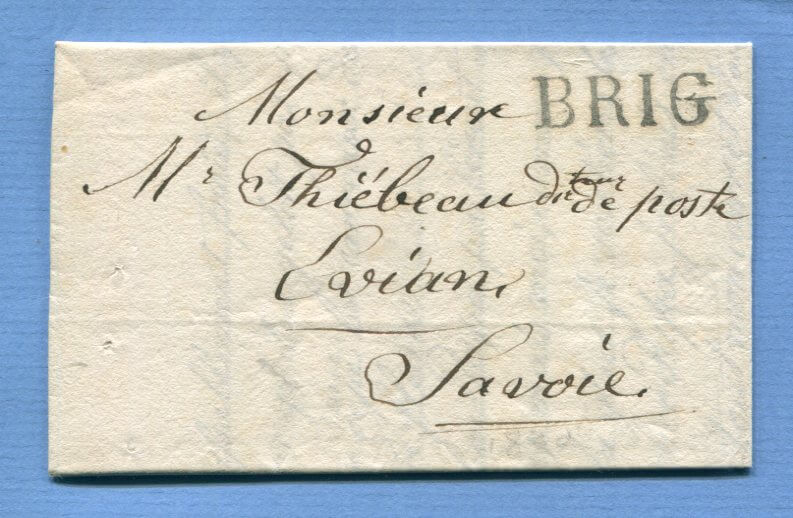 Monsieur BRIG
Mr Thiébeau dirteur de poste
Evian
Savoie.